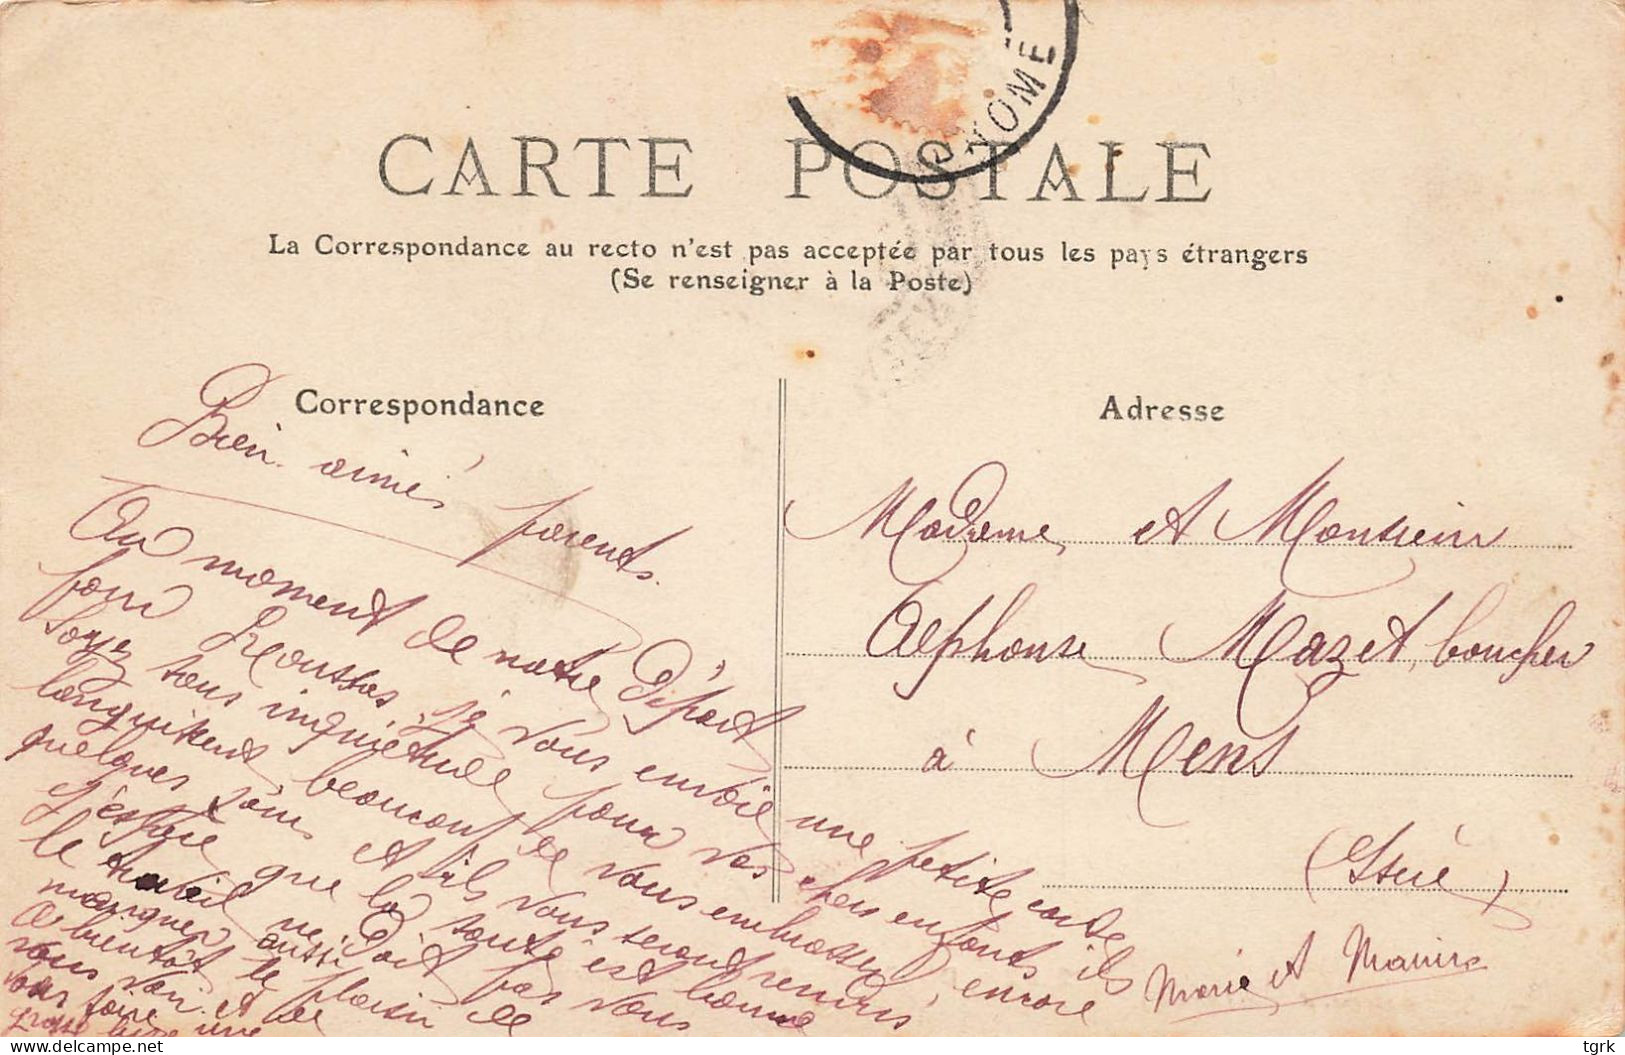 OYOME
CARTE POSTALE
La Correspondance au recto n'est pas acceptée par tous les pays étrangers
(Se renseigner à la Poste)
Correspondance
Bien aimés parents
Au moment de notre départ
pour Roussas, je vous envoie une petite carte
Soyez sans inquiétude pour vos chers enfants ils
languissent beaucoup de vous embrasser, encore
quelques jours et ils vous seront rendus
J'espère que la santé est bonne
le travail ne doit pas vous
manquer aussi
A bientôt le plaisir de
vous voir et de
vous faire une
grosse
Marie et
Adresse
Madame et Monsieur
Alphonse Mazet, boucher
à Mens
(Isère)
delcampe.net
tgrk